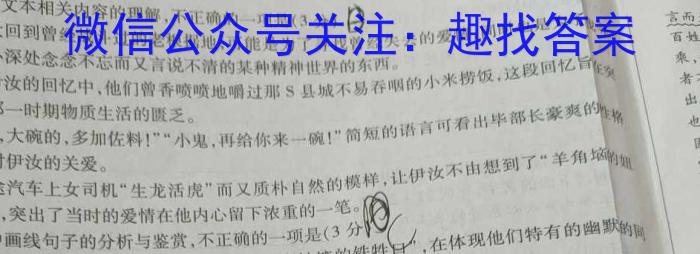 文本相关内容的理解,不正确的一项是(3
微信公众号关注:趣找答案
深处念念不忘而又言说不清的某种精神世界的东西。
汝的回忆中,他们曾香喷喷地嚼过那S县城不易吞咽的小米捞饭,这段回忆旨在突
那一时期物质生活的匮乏。
,大碗的,多加佐料!”“小鬼,再给你来一碗!”简短的语言可看出毕部长豪爽的性格
对伊汝的关爱。
途汽车上女司机“生龙活虎”而又质朴自然的模样,让伊汝不由想到了“羊角垴的妞
,突出了当时的爱情在他内心留下浓重的一笔。
画线句子的分析与鉴赏,不正确的一项是(3分
,在体现他们特有的幽默的同
言而
百姓
乘,
者
出
也